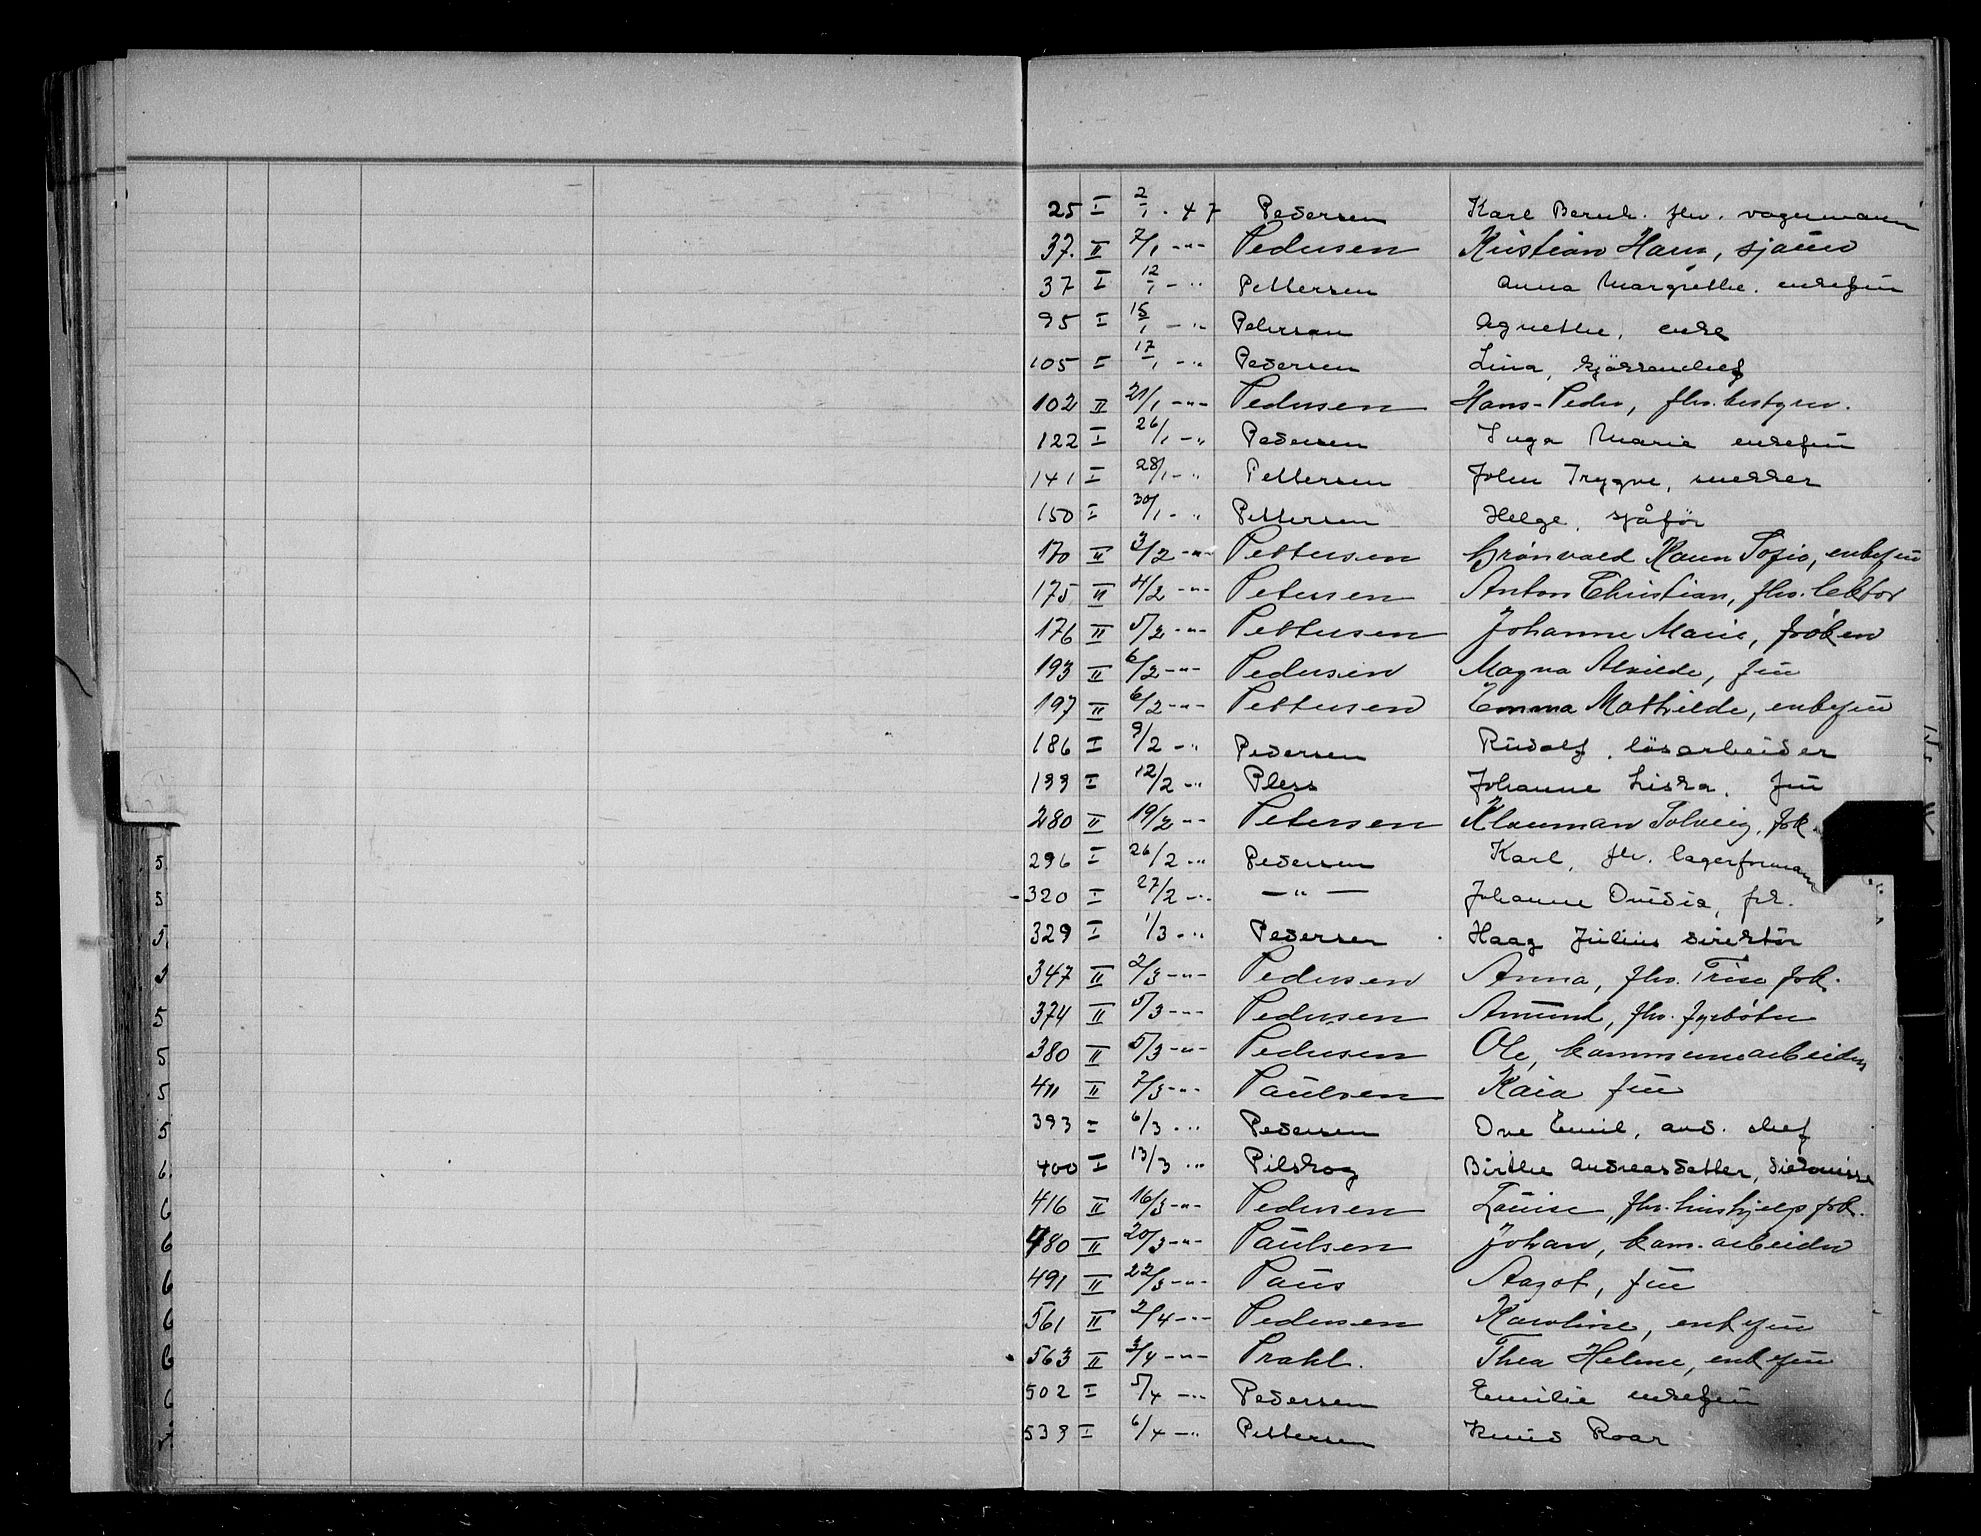 25 I 2/1 . 47 Pedersen Karl Bernh. fhv. vognmann
37. II 7/1 -"- Pedersen Kristian Hans, sjauer
37 I 12/1 - " Pettersen Anna Margrethe. enkefru
95 I 15/1 - " Petersen Agnethe, enke
105 I 17/1 - " Pedersen Lina,
102 II 21/1 -"- Pedersen Hans-Peder, fhv. bestyrer.
122 I 26/1 - " Pedersen Inga Marie enkefru
141 I 28/1 - " Pettersen John Trygve, snekker
150 I 30/1 - " Pettersen Helge, sjåfør
170 II 3/2 -"- Pettersen Grønvold Karen Sofie, enkefru
175 II 4/2 -"- Petersen Anton Christian, fhv. lektor
176 II 5/2 -"- Pettersen Johanne Marie, frøken
193 II 6/2 -"- Pedersen Magna Alvilde, fru
197 II 6/2 -"- Pettersen Emma Mathilde, enkefru
186 I 9/2 - " Pedersen Rudolf, løsarbeider
199 I 12/2 - " Pless Johanne Liska, fru
280 II 19/2 -"- Petersen Klauman Solveig, frk.
296 I 26/2 - " Pedersen Karl, fhv. lagerformann
320 I 27/2 - " — " — Johanne Ovidia, frk.
329 I 1/3 - " Pedersen Haag Julius direktør
347 II 2/3 -"- Pedersen Anna, fhv. frk.
374 II 5/3 -"- Pedersen Amund, fhv. fyrbøter
380 II 5/3 -"- Pedersen Ole, kommunearbeider
411 II 7/3 -"- Paulsen Kaia fru
393 I 6/3 - " Pedersen Ove Emil, avd. chef
400 I 13/3 " Pilskog Birthe Andreasdatter, diakonisse
416 II 16/3 -"- Pedersen Louise, fhv. hushjelp frk.
480 II 20/3 -"- Paulsen Johan, kom. arbeider
491 II 22/3 -"- Paus Aagot, fru
561 II 2/4 -"- Pedersen Karoline, enkefru
563 II 3/4 -"- Prahl. Thea Helene, enkefru
502 I 5/4 - " Pedersen Emilie enkefru
539 I 6/4 - " Pettersen Knud Roar